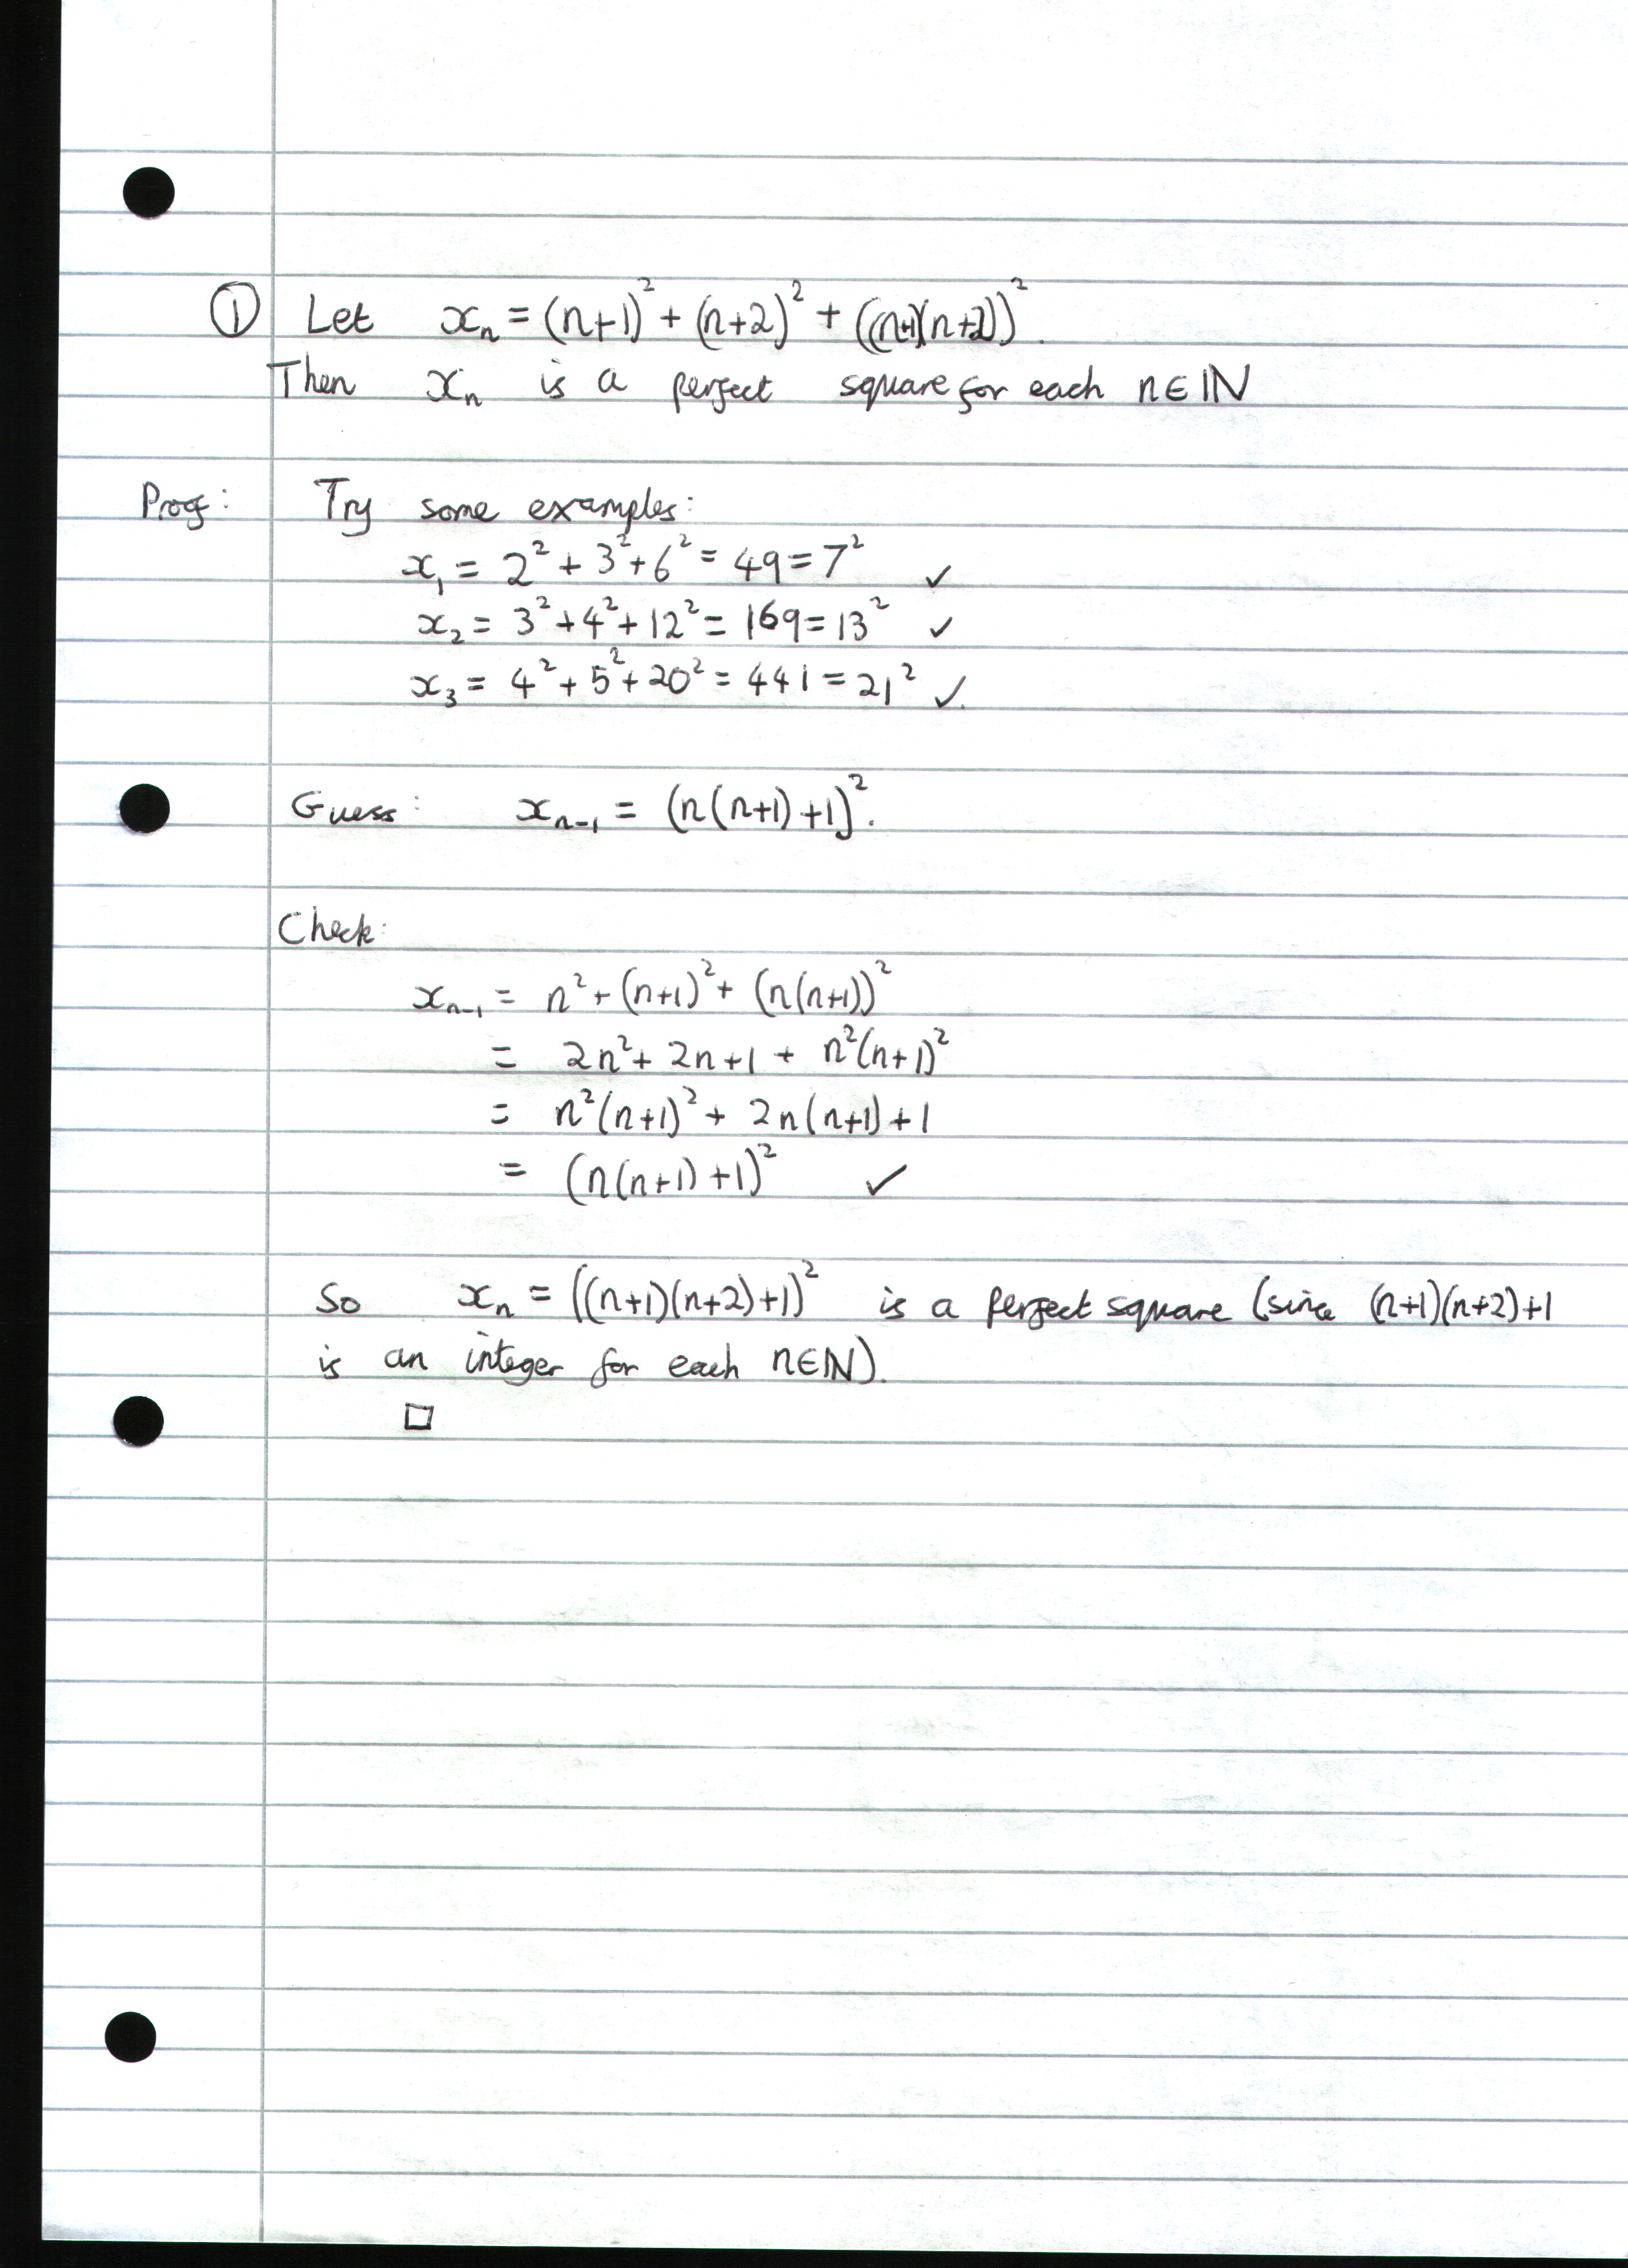 ① Let xₙ = (n+1)² + (n+2)² + ((n+1)(n+2))².
Then xₙ is a perfect square for each n∈ℕ
Proof: Try some examples:
x₁ = 2² + 3² + 6² = 49 = 7² ✓
x₂ = 3² + 4² + 12² = 169 = 13² ✓
x₃ = 4² + 5² + 20² = 441 = 21² ✓.
Guess: xₙ₋₁ = (n(n+1)+1)².
Check:
xₙ₋₁ = n² + (n+1)² + (n(n+1))²
= 2n² + 2n + 1 + n²(n+1)²
= n²(n+1)² + 2n(n+1) + 1
= (n(n+1)+1)² ✓
So xₙ = ((n+1)(n+2)+1)² is a perfect square (since (n+1)(n+2)+1
is an integer for each n∈ℕ).
□